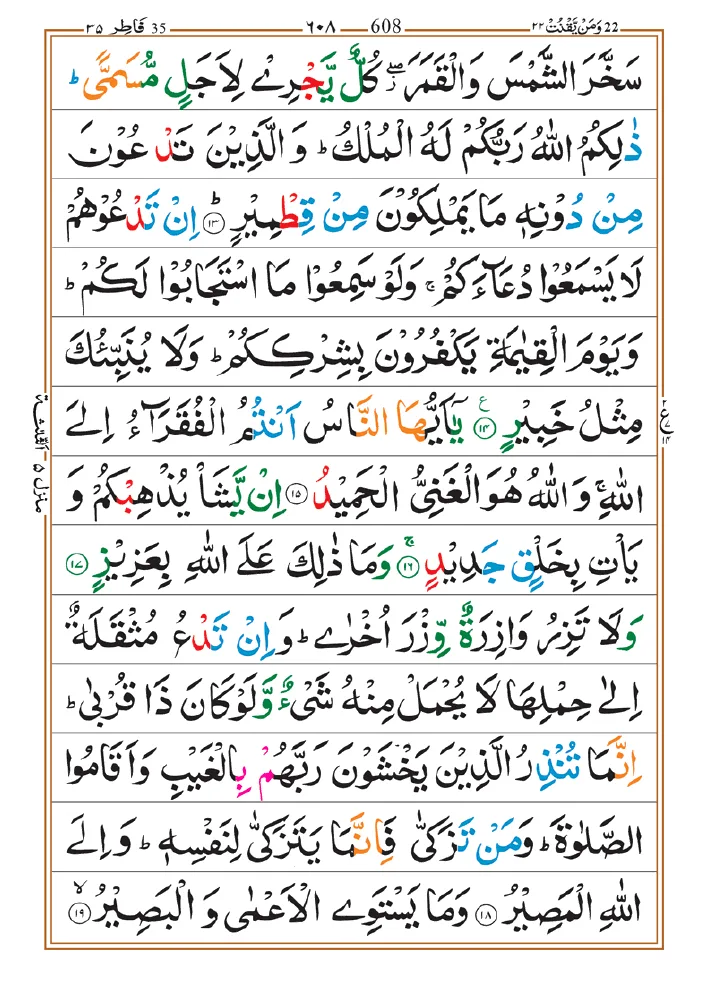 22 وَمَنْ يَّقْنُتْ ٢٢ 608 ٦٠٨ 35 فَاطِر ٣٥
سَخَّرَ الشَّمْسَ وَالْقَمَرَ ۖز كُلٌّ يَّجْرِيْ لِاَجَلٍ مُّسَمًّى ؕ
ذٰلِكُمُ اللّٰهُ رَبُّكُمْ لَهُ الْمُلْكُ ؕ وَ الَّذِيْنَ تَدْعُوْنَ
مِنْ دُوْنِهٖ مَا يَمْلِكُوْنَ مِنْ قِطْمِيْرٍ ؕ ۝١٣ اِنْ تَدْعُوْهُمْ
لَا يَسْمَعُوْا دُعَآءَكُمْ ۚ وَلَوْ سَمِعُوْا مَا اسْتَجَابُوْا لَكُمْ ؕ
وَيَوْمَ الْقِيٰمَةِ يَكْفُرُوْنَ بِشِرْكِكُمْ ؕ وَلَا يُنَبِّئُكَ
مِثْلُ خَبِيْرٍ ۝١٤ ع يٰۤاَيُّهَا النَّاسُ اَنْتُمُ الْفُقَرَآءُ اِلَى
اللّٰهِ ۚ وَاللّٰهُ هُوَ الْغَنِىُّ الْحَمِيْدُ ۝١٥ اِنْ يَّشَاْ يُذْهِبْكُمْ وَ
يَاْتِ بِخَلْقٍ جَدِيْدٍ ۚ ۝١٦ وَمَا ذٰلِكَ عَلَى اللّٰهِ بِعَزِيْزٍ ۝١٧
وَلَا تَزِرُ وَازِرَةٌ وِّزْرَ اُخْرٰى ؕ وَاِنْ تَدْعُ مُثْقَلَةٌ
اِلٰى حِمْلِهَا لَا يُحْمَلْ مِنْهُ شَىْءٌ وَّلَوْ كَانَ ذَا قُرْبٰى ؕ
اِنَّمَا تُنْذِرُ الَّذِيْنَ يَخْشَوْنَ رَبَّهُمْ بِالْغَيْبِ وَاَقَامُوا
الصَّلٰوةَ ؕ وَمَنْ تَزَكّٰى فَاِنَّمَا يَتَزَكّٰى لِنَفْسِهٖ ؕ وَاِلَى
اللّٰهِ الْمَصِيْرُ ۝١٨ وَمَا يَسْتَوِى الْاَعْمٰى وَ الْبَصِيْرُ ۙ ۝١٩
ع ٧ ١٤
الثلثة
منزل ٥